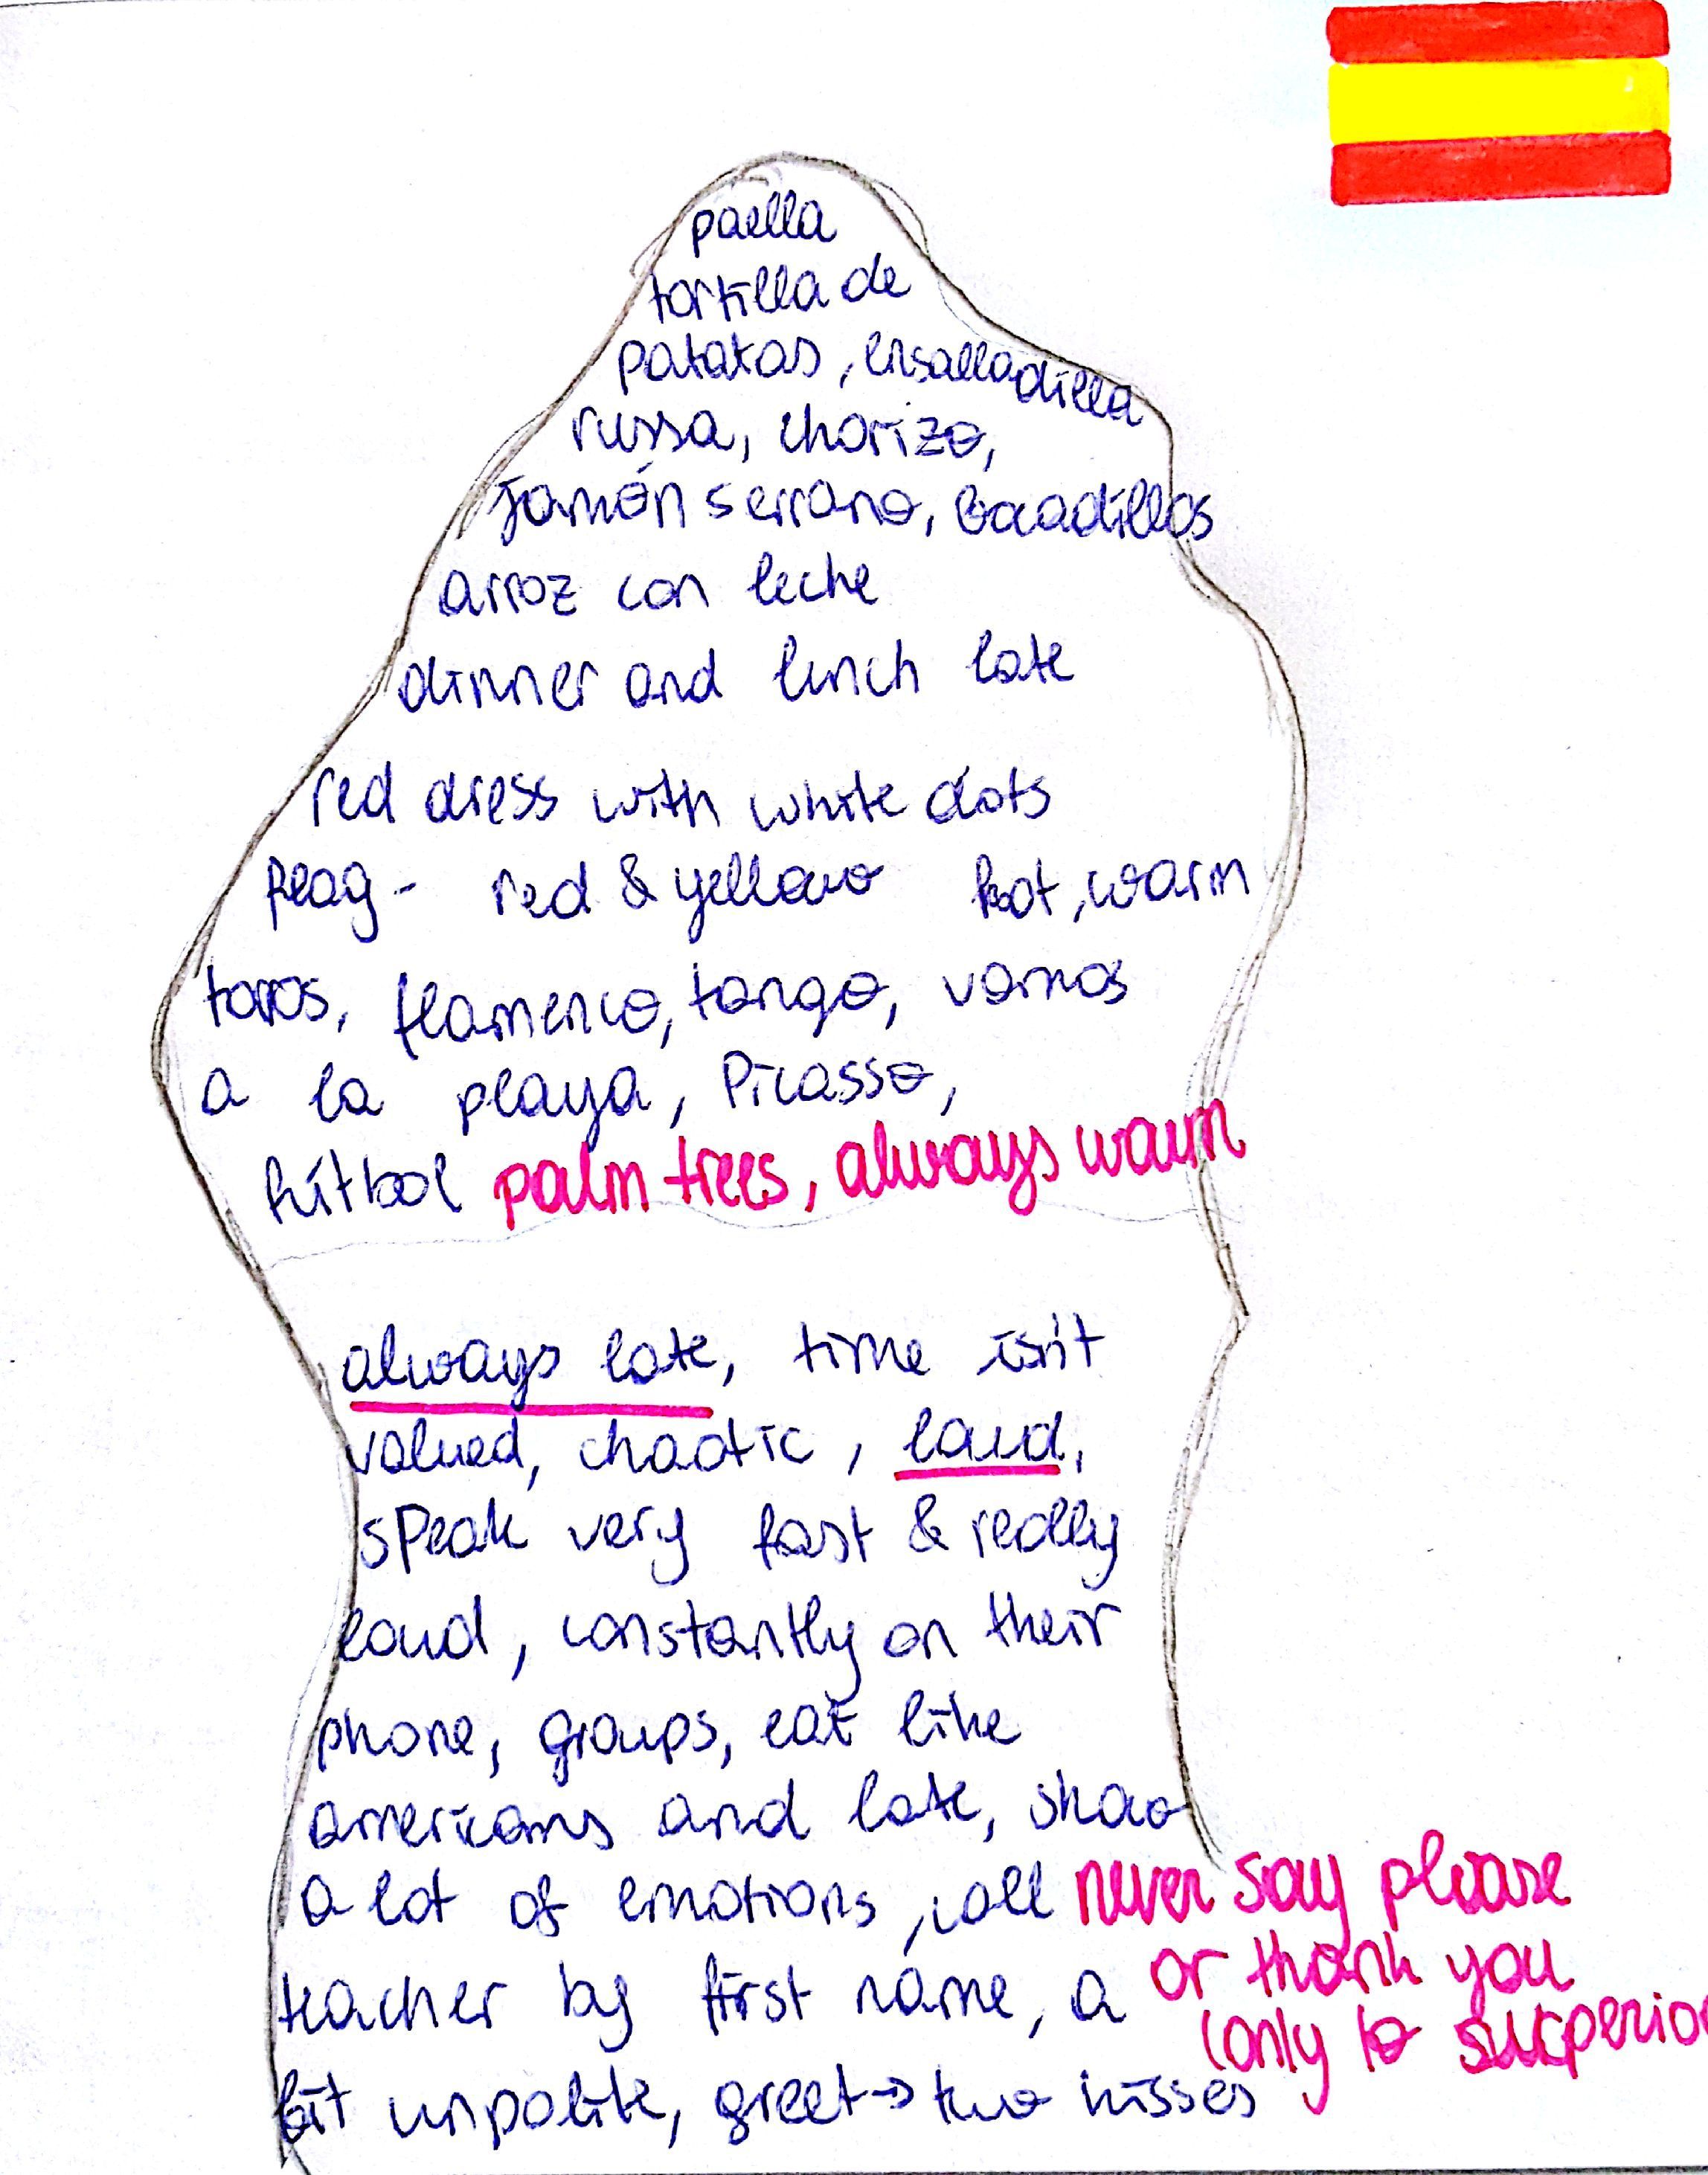 paella
tortilla de
patatas, ensalladilla
russa, chorizo,
Jamón serrano, bocadillos
arroz con leche
dinner and lunch late
red dress with white dots
flag - red & yellow hot, warm
toros, flamenco, tango, vamos
a la playa, Picasso,
fútbol palm trees, always warm
always late, time isn't
valued, chaotic, loud,
speak very fast & really
loud, constantly on their
phone, groups, eat like
americans and late, show
a lot of emotions, call never say please
teacher by first name, a or thank you
(only to superior
bit unpolite, greet → two kisses